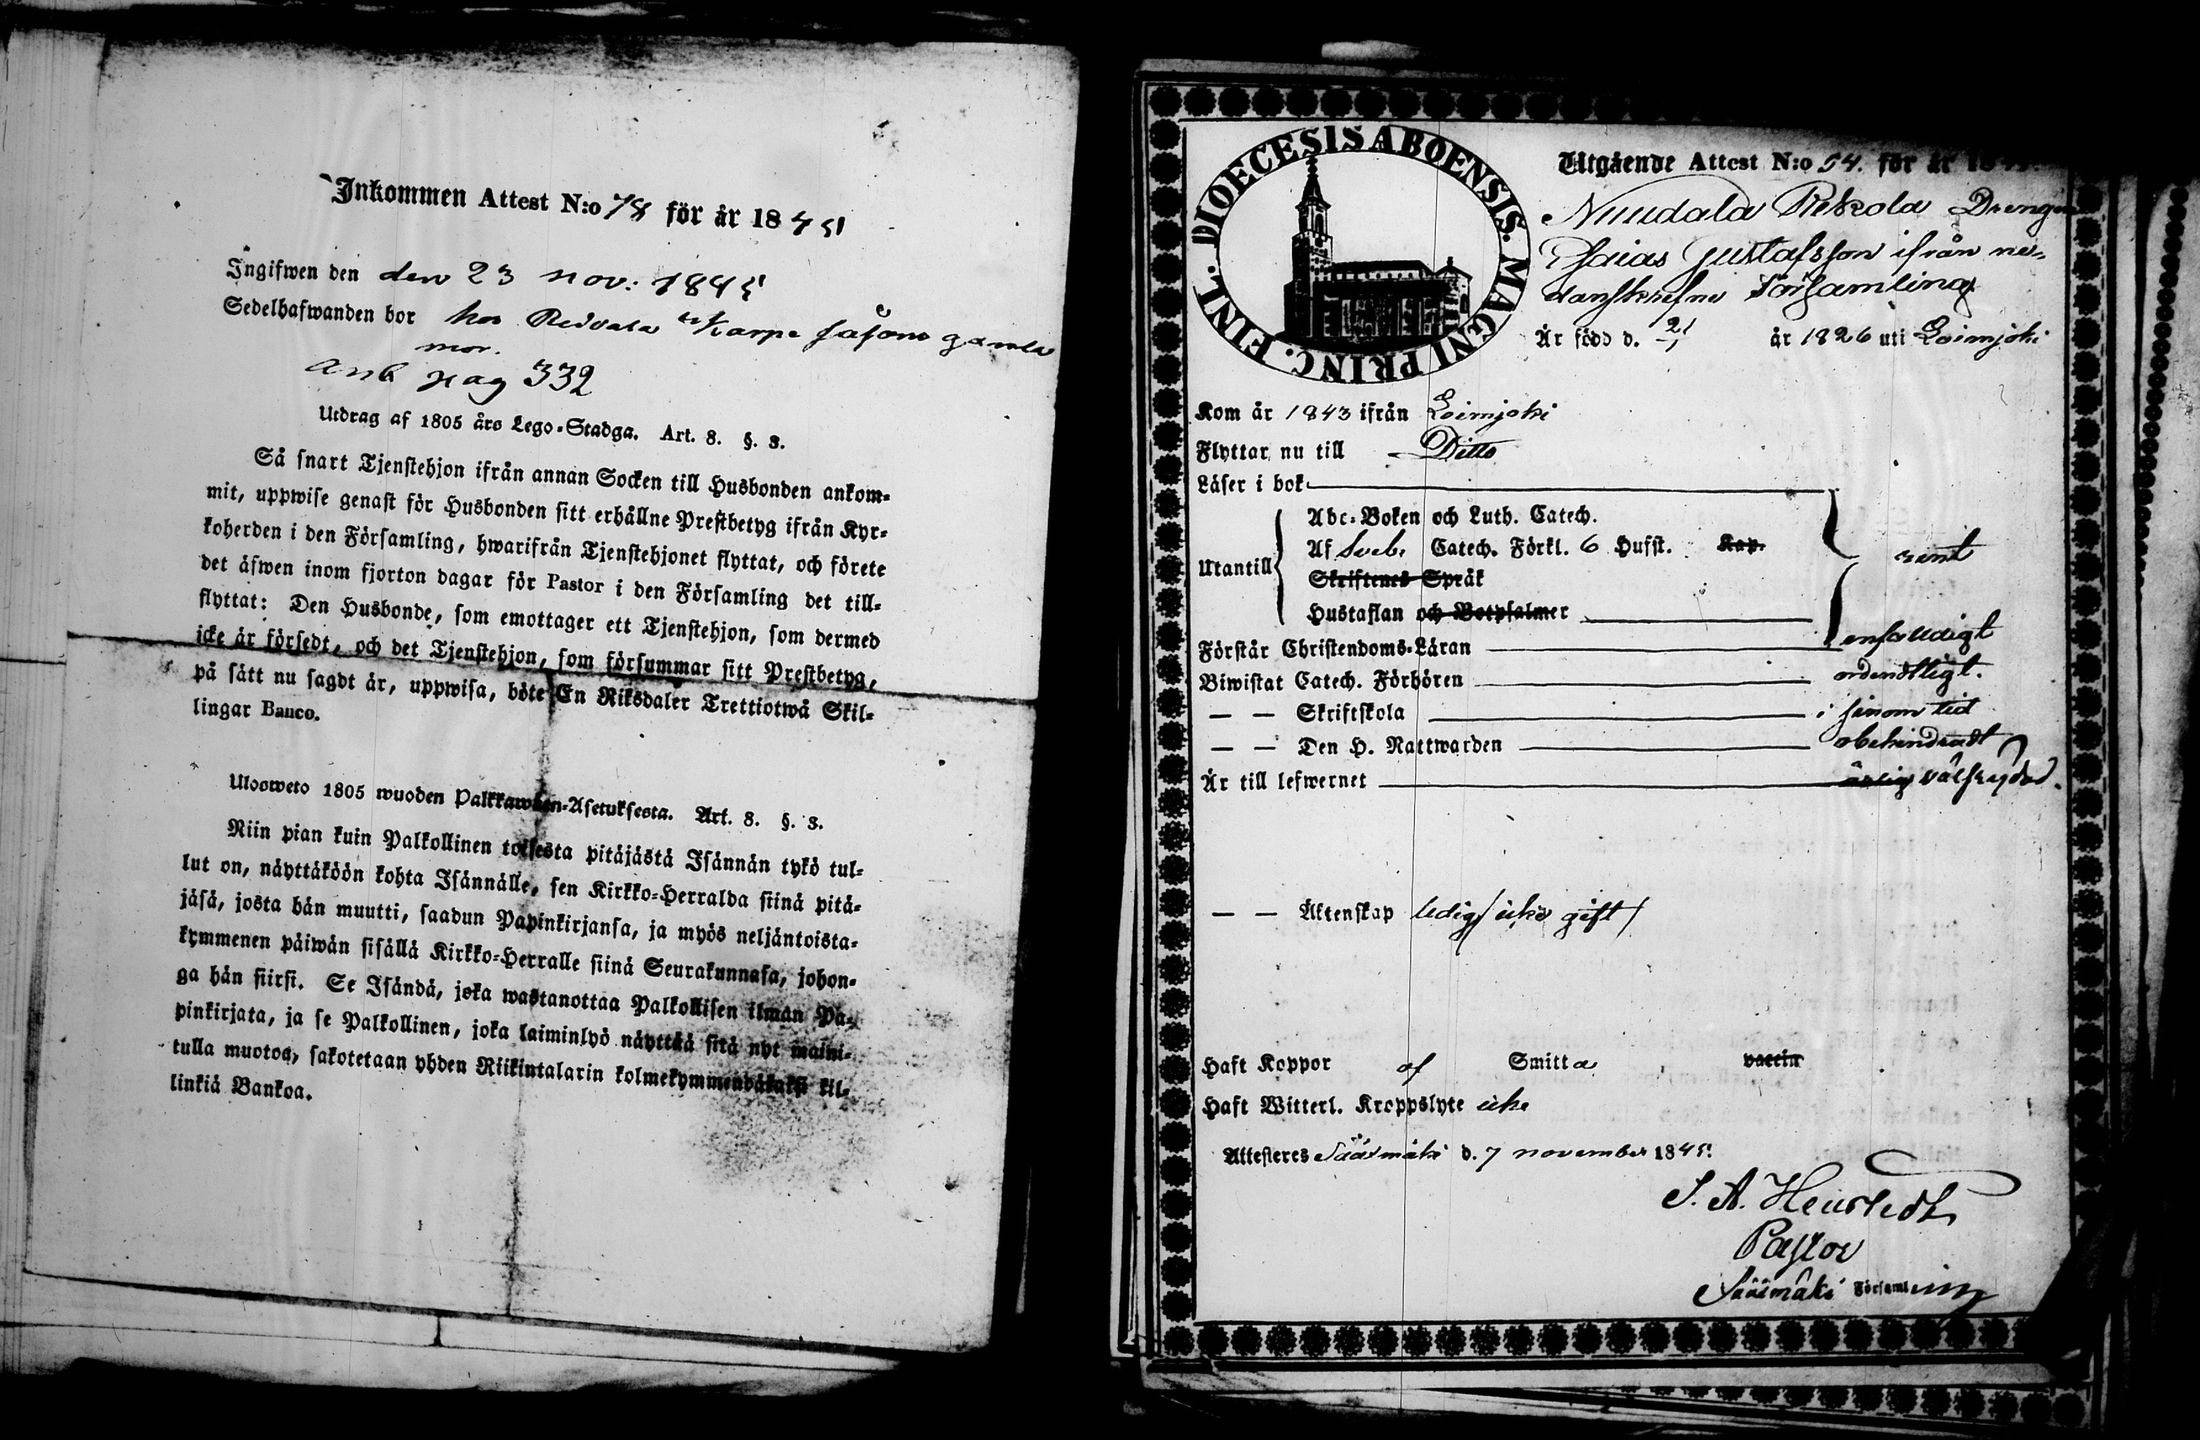 Inkommen Attest N:o 78 för år 1845
Ingifwen den den 23 nov: 1845
Sedelhafwanden bor hos Karpe gamla
mor.
anb pag 332
Utdrag af 1805 års Lego-Stadga. Art. 8. §. 3.
Så snart Tjenstehjon ifrån annan Socken till Husbonden ankom-
mit, uppwise genast för Husbonden sitt erhållne Prestbetyg ifrån Kyr-
koherden i den Församling, hwarifrån Tjenstehjonet flyttat, och förete
det äfwen inom fjorton dagar för Pastor i den Församling det till-
flyttat: Den Husbonde, som emottager ett Tjenstehjon, som dermed
icke är försedt, och det Tjenstehjon, som försummar sitt Prestbetyg,
på sätt nu sagdt är, uppwisa, böte En Riksdaler Trettiotwå Skil-
lingar Banco.
Ulosweto 1805 wuoden Palkkawäen-Asetuksesta. Art. 8. §. 3.
Niin pian kuin Palkollinen toisesta pitäjästä Isännän tykö tul-
lut on, näyttäköön kohta Isännälle, sen Kirkko-Herralda siinä pitä-
jäsä, josta hän muutti, saadun Papinkirjansa, ja myös neljäntoista-
kymmenen päiwän sisällä Kirkko-Herralle siinä Seurakunnasa, johon-
ga hän siirsi. Se Isändä, joka wastanottaa Palkollisen ilman Pa-
pinkirjata, ja se Palkollinen, joka laiminlyö näyttää sitä nyt maini-
tulla muotoa, sakotetaan yhden Riikintalarin kolmekymmendäkaksi kil-
linkiä Bankoa.
DIOECESIS ABOENSIS. MAGNI PRINC. FINL.
Utgående Attest N:o 54. för år 1845.
Nuudala Rekola Drengen
Esaias Gustafsson ifrån ne-
danskrefne Församling
Är född d. 21 år 1826 uti Loimjoki
Kom år 1843 ifrån Loimjoki
Flyttar nu till Ditto
Läser i bok
Utantill
Abc-Boken och Luth. Catech.
Af Sveb. Catech. Förkl. 6 Hufst. Kap.
Skriftenes Språk
Hustaflan och Botpsalmer
rent
Förstår Christendoms-Läran enfalldigt
Biwistat Catech. Förhören ordentligt.
— — Skriftskola i sinom tid
— — Den H. Nattwarden obehindradt
Är till lefwernet ärlig välfrejdad.
— — Äktenskap ledig / icke gift /
Haft Koppor af Smitta vaccin
Haft Witterl. Kroppslyte icke
Attesteres Sääsmäki d. 7 november 1845.
Pastor
Sääsmäki Församling